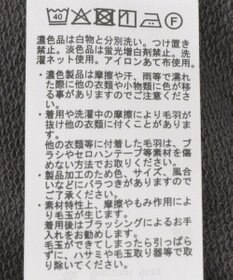 40
濃色品は白物と分別洗い。つけ置き
禁止。淡色品は蛍光増白剤禁止。洗
濯ネット使用。アイロンあて布使用。
●濃色製品は摩擦や汗、雨等で濡れ
た際に他の衣類や小物類に色が移
る事がありますのでご注意くださ
い。
●着用や洗濯中の摩擦により毛羽が
抜け他の衣類に付くことがありま
す。
他の衣類等に付着した毛羽は、ブ
ラシやセロハンテープ等素材を傷
めない方法でお取りください。
●製品加工のため色、サイズ、風合
いなどにバラつきがありますので
ご了承ください。
●素材特性上、摩擦やもみ作用によ
り毛玉が生じます。
着用後はブラッシングによるお手
入れをお勧めします。
毛玉ができてしまったら引っぱら
ずに、ハサミや毛玉取り器等で取
り除いてください。